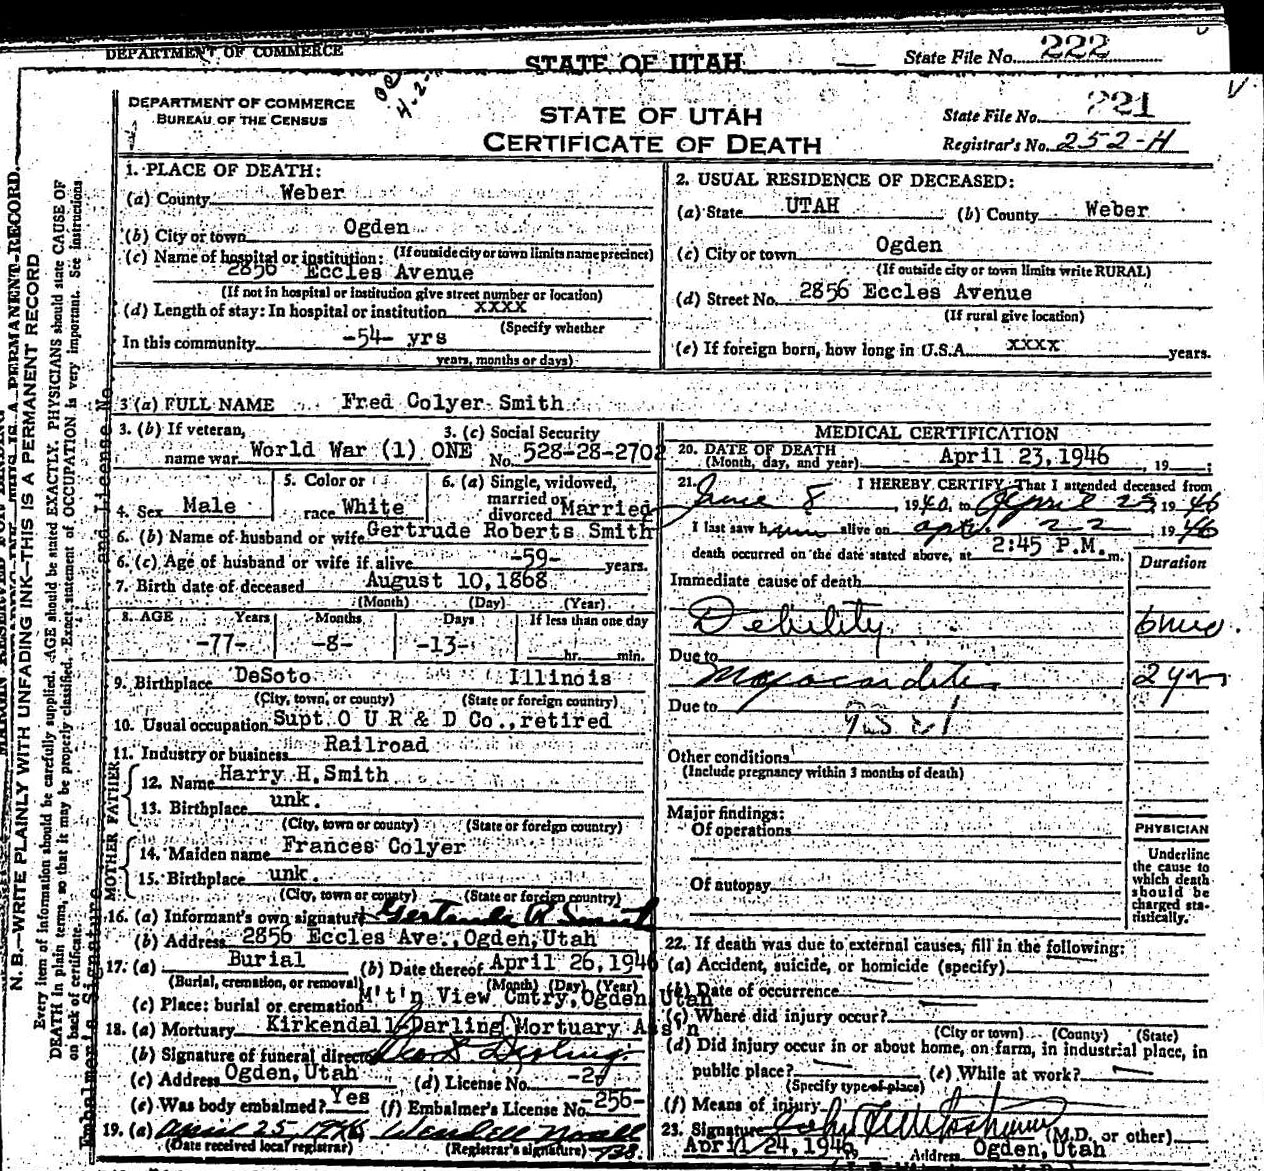 DEPARTMENT OF COMMERCE
STATE OF UTAH
State File No. 222
DEPARTMENT OF COMMERCE
BUREAU OF THE CENSUS
STATE OF UTAH
CERTIFICATE OF DEATH
State File No. 221
Registrar's No. 252-H
1. PLACE OF DEATH:
(a) County Weber
(b) City or town Ogden
(If outside city or town limits name precinct)
(c) Name of hospital or institution:
2856 Eccles Avenue
(If not in hospital or institution give street number or location)
(d) Length of stay: In hospital or institution xxxx
(Specify whether
In this community -54- yrs
years, months or days)
2. USUAL RESIDENCE OF DECEASED:
(a) State UTAH (b) County Weber
(c) City or town Ogden
(If outside city or town limits write RURAL)
(d) Street No. 2856 Eccles Avenue
(If rural give location)
(e) If foreign born, how long in U.S.A. xxxx years.
3 (a) FULL NAME Fred Colyer Smith
3. (b) If veteran, name war World War (1) ONE
3. (c) Social Security No. 528-28-2702
4. Sex Male
5. Color or race White
6. (a) Single, widowed, married or divorced Married
6. (b) Name of husband or wife Gertrude Roberts Smith
6. (c) Age of husband or wife if alive -59- years.
7. Birth date of deceased August 10, 1868
(Month) (Day) (Year)
8. AGE Years Months Days If less than one day
-77- -8- -13- hr. min.
9. Birthplace DeSoto Illinois
(City, town, or county) (State or foreign country)
10. Usual occupation Supt O U R & D Co., retired
11. Industry or business Railroad
FATHER
12. Name Harry H. Smith
13. Birthplace unk.
(City, town or county) (State or foreign country)
MOTHER
14. Maiden name Frances Colyer
15. Birthplace unk.
(City, town or county) (State or foreign country)
16. (a) Informant's own signature Gertrude R Smith
(b) Address 2856 Eccles Ave., Ogden, Utah
17. (a) Burial (b) Date thereof April 26, 1946
(Burial, cremation, or removal) (Month) (Day) (Year)
(c) Place: burial or cremation M't'n View Cmtry, Ogden Utah
18. (a) Mortuary Kirkendall Darling Mortuary Ass'n
(b) Signature of funeral director
(c) Address Ogden, Utah (d) License No.
(e) Was body embalmed? Yes (f) Embalmer's License No. -256-
19. (a) April 25 1946 Wendell Noall
(Date received local registrar) (Registrar's signature)
MEDICAL CERTIFICATION
20. DATE OF DEATH
(Month, day, and year) April 23, 1946, 19
21. I HEREBY CERTIFY, That I attended deceased from
June 8, 1940, to April 23, 1946
I last saw him alive on April 22, 1946
death occurred on the date stated above, at 2:45 P.M. m.
Duration
Immediate cause of death
Debility 6 mo.
Due to
Myocarditis 2 yrs
Due to
Other conditions
(Include pregnancy within 3 months of death)
Major findings:
Of operations
Of autopsy
PHYSICIAN
Underline the cause to which death should be charged statistically.
22. If death was due to external causes, fill in the following:
(a) Accident, suicide, or homicide (specify)
(b) Date of occurrence
(c) Where did injury occur?
(City or town) (County) (State)
(d) Did injury occur in or about home, on farm, in industrial place, in
public place? (e) While at work?
(Specify type of place)
(f) Means of injury
23. Signature (M.D. or other)
April 24, 1946 Address Ogden, Utah
N. B.—WRITE PLAINLY WITH UNFADING INK—THIS IS A PERMANENT RECORD
Every item of information should be carefully supplied. AGE should be stated EXACTLY. PHYSICIANS should state CAUSE OF
DEATH in plain terms, so that it may be properly classified. Exact statement of OCCUPATION is very important. See instructions
on back of certificate.
Embalmer's Signature and License No.